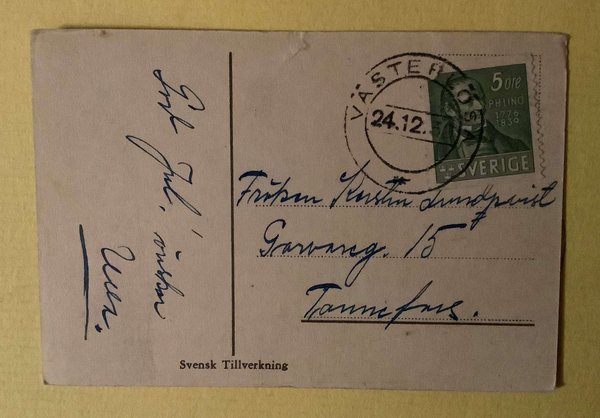 God Jul!
önskar
VÄSTERLÖSA
24.12.
5 ÖRE
PH LING
1776
1839
SVERIGE
Fröken Kerstin Lundqvist
Garvareg. 15
Tannefors.
Svensk Tillverkning